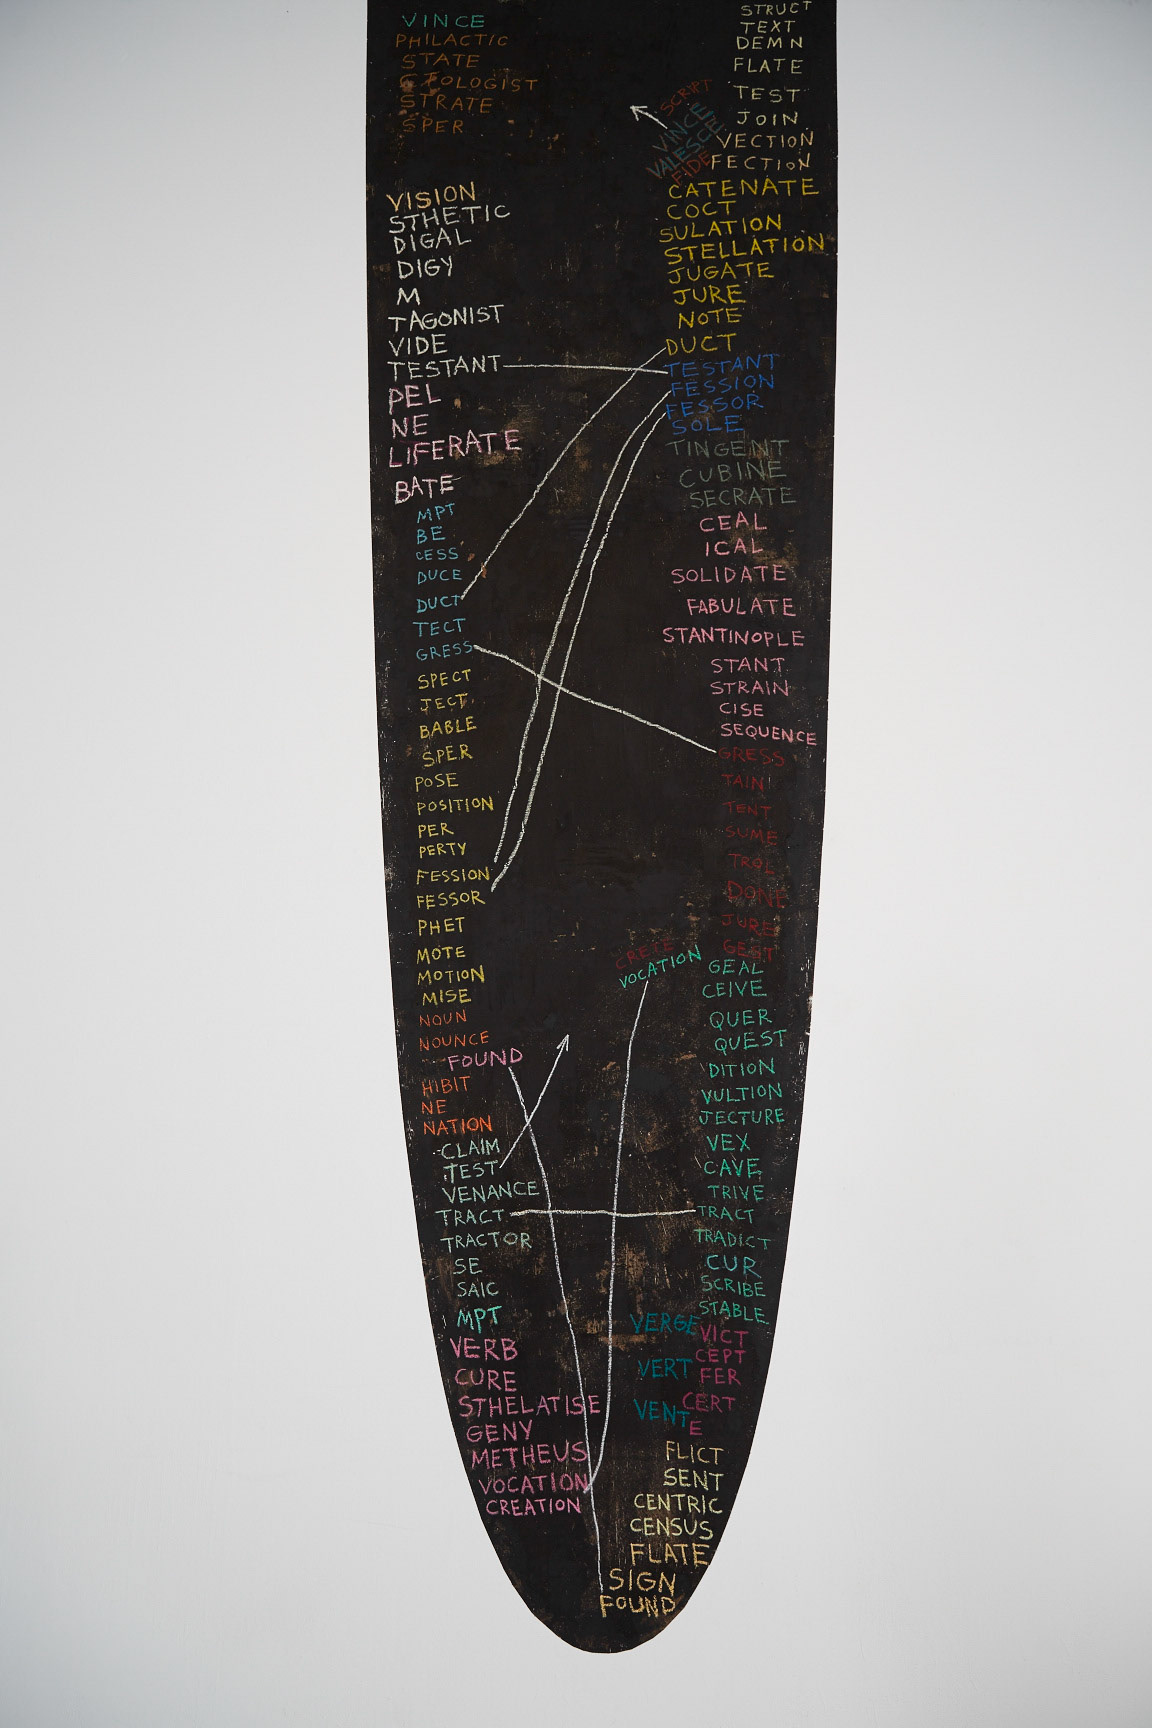 VINCE
PHILACTIC
STATE
STRATE
SPER
VISION
STHETIC
DIGAL
DIGY
M
TAGONIST
VIDE
TESTANT
PEL
NE
LIFERATE
BATE
MPT
BE
CESS
DUCE
DUCT
TECT
GRESS
SPECT
JECT
BABLE
SPER
POSE
POSITION
PER
PERTY
FESSION
FESSOR
PHET
MOTE
MOTION
MISE
NOUN
NOUNCE
FOUND
HIBIT
NE
NATION
CLAIM
TEST
VENANCE
TRACT
TRACTOR
SE
SAIC
MPT
VERB
CURE
STHELATISE
GENY
METHEUS
VOCATION
CREATION
STRUCT
TEXT
DEMN
FLATE
TEST
JOIN
VECTION
FECTION
SCRIPT
VINCE
VALESCE
FIDE
CATENATE
COCT
SULATION
STELLATION
JUGATE
JURE
NOTE
DUCT
TESTANT
FESSION
FESSOR
SOLE
TINGENT
CUBINE
SECRATE
CEAL
ICAL
SOLIDATE
FABULATE
STANTINOPLE
STANT
STRAIN
CISE
SEQUENCE
GRESS
TAIN
TENT
SUME
TROL
DONE
JURE
GEST
CRETE
VOCATION
GEAL
CEIVE
QUER
QUEST
DITION
VULTION
JECTURE
VEX
CAVE
TRIVE
TRACT
TRADICT
CUR
SCRIBE
STABLE
VERGE
VICT
CEPT
VERT
FER
CERT
VENT
E
FLICT
SENT
CENTRIC
CENSUS
FLATE
SIGN
FOUND